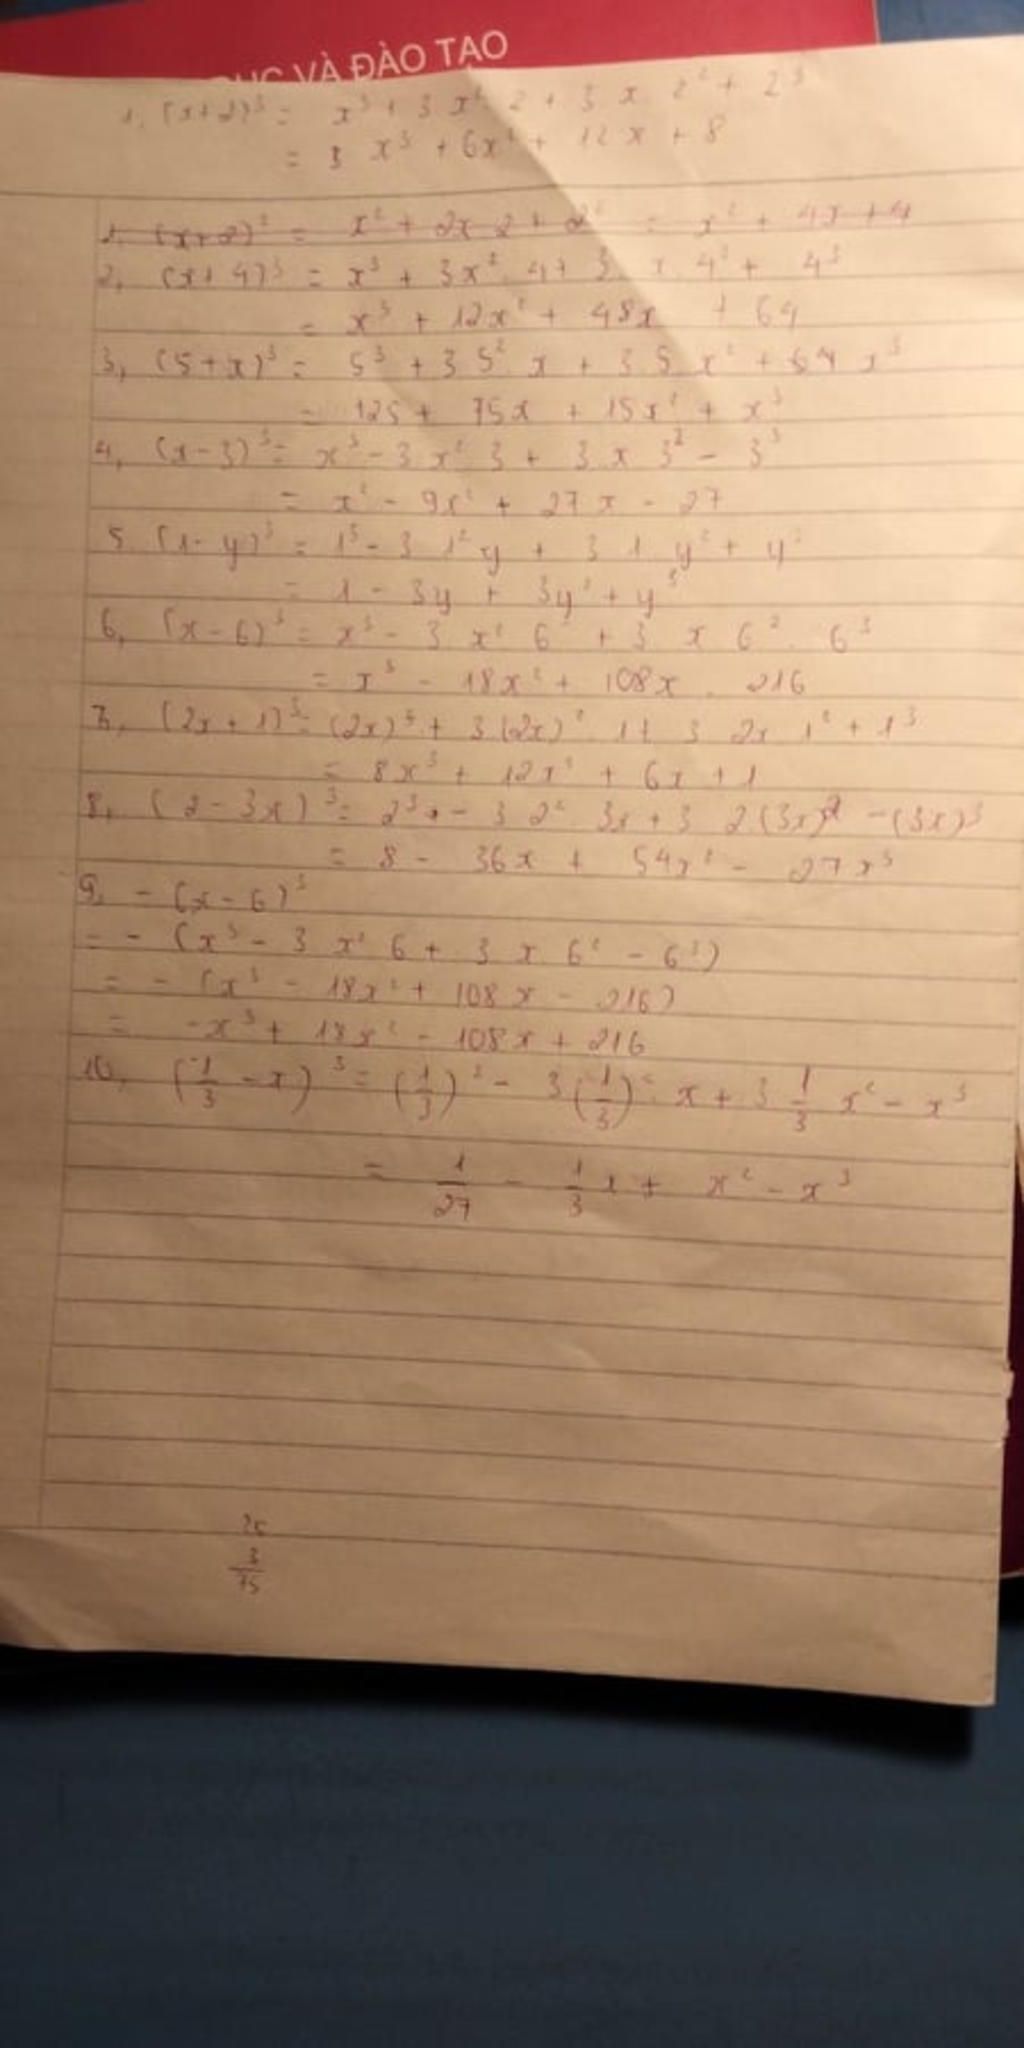 VÀ ĐÀO TẠO
1, (x+2)³ = x³ + 3 x² 2 + 3 x 2² + 2³
= 3 x³ + 6x² + 12x + 8
1. (x+2)² = x² + 2x 2 + 2² = x² + 4x + 4
2, (x+4)³ = x³ + 3x² 4 + 3 x 4² + 4³
= x³ + 12x² + 48x + 64
3, (5+x)³ = 5³ + 3 5² x + 3 5 x² + x³
= 125 + 75x + 15x² + x³
4, (x-3)³ = x³ - 3 x² 3 + 3 x 3² - 3³
= x² - 9x² + 27x - 27
5. (1-y)³ = 1³ - 3 1² y + 3 1 y² + y³
= 1 - 3y + 3y² + y³
6, (x-6)³ = x³ - 3 x² 6 + 3 x 6² - 6³
= x³ - 18x² + 108x - 216
7, (2x+1)³ = (2x)³ + 3(2x)² 1 + 3 2x 1² + 1³
= 8x³ + 12x² + 6x + 1
8, (2-3x)³ = 2³ - 3 2² 3x + 3 2(3x)² - (3x)³
= 8 - 36x + 54x² - 27x³
9, - (x-6)³
= - (x³ - 3 x² 6 + 3 x 6² - 6³)
= - (x³ - 18x² + 108x - 216)
= -x³ + 18x² - 108x + 216
10, (1/3 - x)³ = (1/3)³ - 3(1/3)² x + 3 1/3 x² - x³
= 1/27 - 1/3 x + x² - x³
25
3
75